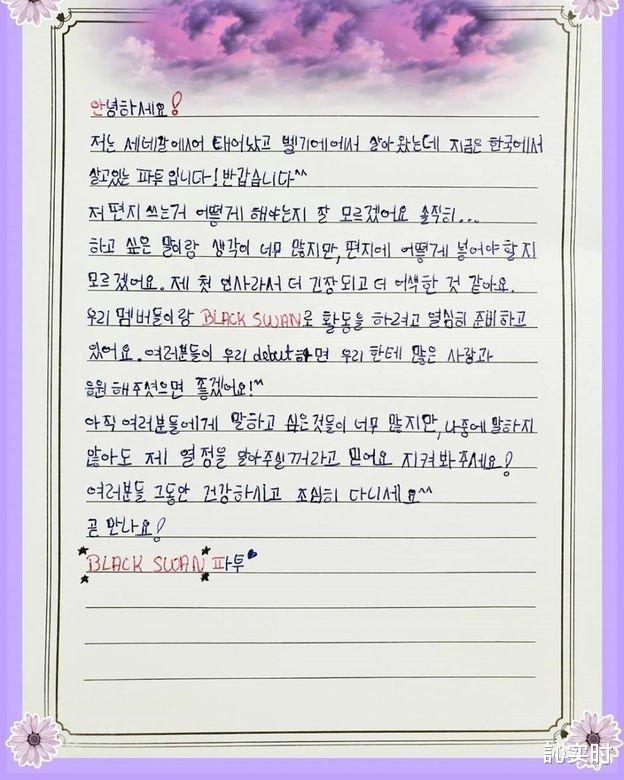 안녕하세요!
저는 세네갈에서 태어났고 벨기에에서 살아왔는데 지금은 한국에서
살고있는 파투입니다! 반갑습니다^^
저 편지 쓰는거 어떻게 해야는지 잘 모르겠어요 솔직히...
하고 싶은 말이랑 생각이 너무 많지만, 편지에 어떻게 넣어야 할지
모르겠어요. 제 첫 인사라서 더 긴장되고 더 어색한 것 같아요.
우리 멤버들이랑 BLACK SWAN로 활동을 하려고 열심히 준비하고
있어요. 여러분들이 우리 debut하면 우리 한테 많은 사랑과
응원 해주셧으면 좋겠어요!^^
아직 여러분들에게 말하고 싶은것들이 너무 많지만, 나중에 말하지
않아도 제 열정을 알아주실꺼라고 믿어요 지켜봐주세요!
여러분들 그동안 건강하시고 조심히 다니세요^^
곧 만나요!
BLACK SWAN 파투
訫实时